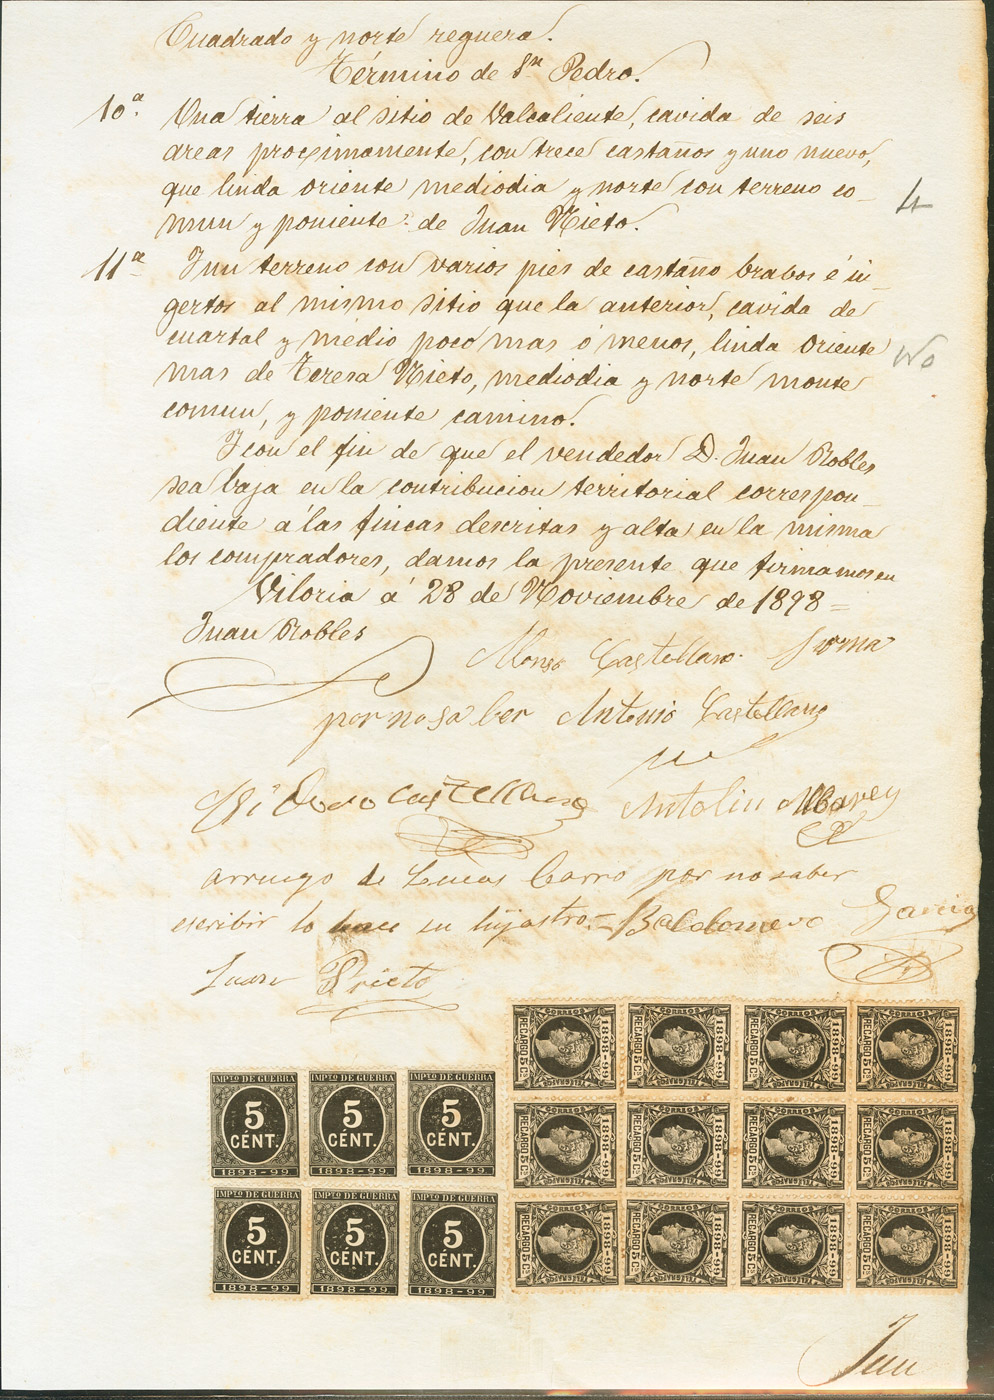 Cuadrado y norte reguera.
Término de Sn Pedro.
10ª Una tierra al sitio de Valcaliente, cavida de seis
areas procsimamente, con trece castaños y uno nuevo,
que linda oriente mediodia y norte con terreno co-
mun y poniente de Juan Nieto.
4
11ª Y un terreno con varios pies de castaño brabos é in-
gertos al mismo sitio que la anterior, cavida de
cuartal y medio poco mas ó menos, linda oriente
No
mas de Teresa Nieto, mediodia y norte monte
comun, y poniente camino.
Y con el fin de que el vendedor D. Juan Robles
sea baja en la contribucion territorial correspon-
diente á las fincas descritas y alta en la misma
los compradores, damos la presente que firmamos en
Viloria á 28 de Noviembre de 1898=
Juan Robles
Alonso Castellano. firma
por no saber Antonio Castellano
Isidoro Castellano Antolin
arruego de Lucas Carro por no saber
escribir lo hace su hijastro.= Baldomero Garcia
Juan Prieto
IMPTO DE GUERRA
5
CÉNT.
1898-99
IMPTO DE GUERRA
5
CÉNT.
1898-99
IMPTO DE GUERRA
5
CÉNT.
1898-99
IMPTO DE GUERRA
5
CÉNT.
1898-99
IMPTO DE GUERRA
5
CÉNT.
1898-99
IMPTO DE GUERRA
5
CÉNT.
1898-99
CORREOS
TELEGRAFOS
1898-99
RECARGO 5 CS
CORREOS
TELEGRAFOS
1898-99
RECARGO 5 CS
CORREOS
TELEGRAFOS
1898-99
RECARGO 5 CS
CORREOS
TELEGRAFOS
1898-99
RECARGO 5 CS
CORREOS
TELEGRAFOS
1898-99
RECARGO 5 CS
CORREOS
TELEGRAFOS
1898-99
RECARGO 5 CS
CORREOS
TELEGRAFOS
1898-99
RECARGO 5 CS
CORREOS
TELEGRAFOS
1898-99
RECARGO 5 CS
CORREOS
TELEGRAFOS
1898-99
RECARGO 5 CS
CORREOS
TELEGRAFOS
1898-99
RECARGO 5 CS
CORREOS
TELEGRAFOS
1898-99
RECARGO 5 CS
CORREOS
TELEGRAFOS
1898-99
RECARGO 5 CS